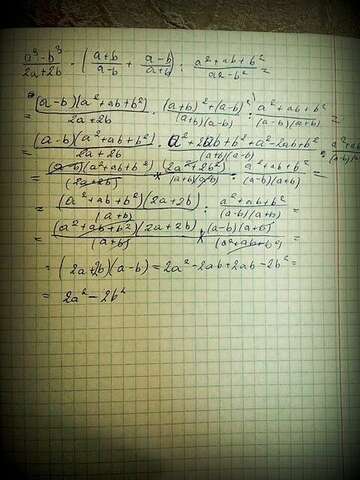 (a³-b³)/(2a+2b) · ((a+b)/(a-b) + (a-b)/(a+b)) : (a²+ab+b²)/(a²-b²) =
= ((a-b)(a²+ab+b²))/(2a+2b) · ((a+b)²+(a-b)²)/((a+b)(a-b)) : (a²+ab+b²)/((a-b)(a+b))
= ((a-b)(a²+ab+b²))/(2a+2b) · (a²+2ab+b²+a²-2ab+b²)/((a+b)(a-b)) : (a²+ab
= ((a-b)(a²+ab+b²))/(2a+2b) × (2a²+2b²)/((a+b)(a-b)) : (a²+ab+b²)/((a-b)(a+b)) =
= ((a²+ab+b²)(2a+2b))/(a+b) : (a²+ab+b²)/((a-b)(a+b)) =
= ((a²+ab+b²)(2a+2b))/(a+b) × ((a-b)(a+b))/(a²+ab+b²) =
= (2a+2b)(a-b) = 2a²-2ab+2ab-2b² =
= 2a²-2b²